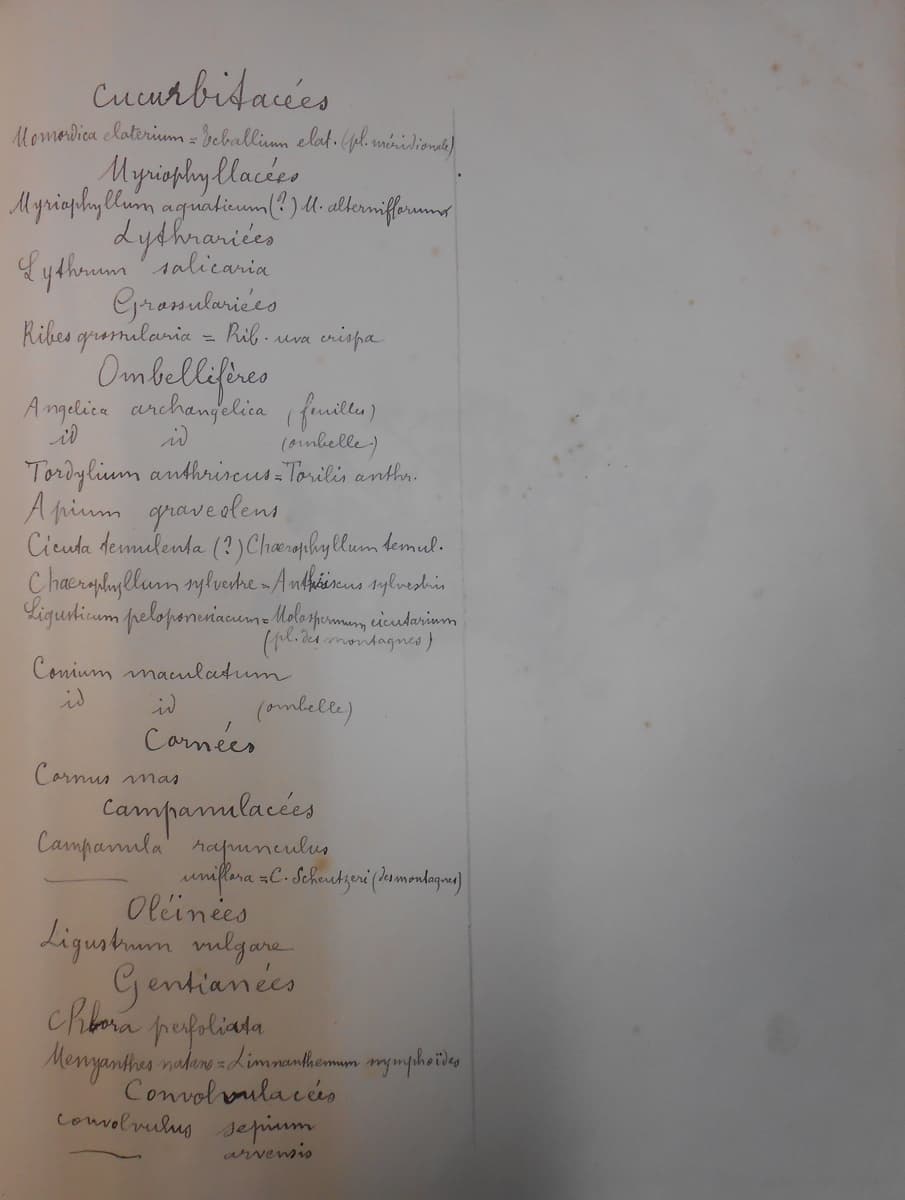 Cucurbitacées
Momordica elaterium = Ecballium elat. (pl. méridionale)
Myriophyllacées
Myriophyllum aquaticum (?) M. alterniflorum
Lythrariées
Lythrum salicaria
Grossulariées
Ribes grossularia = Rib. uva crispa
Ombellifères
Angelica archangelica (feuilles)
id id (ombelle)
Tordylium anthriscus = Torilis anthr.
Apium graveolens
Cicuta temulenta (?) Chaerophyllum temul.
Chaerophyllum sylvestre = Anthriscus sylvestris
Ligusticum peloponeriacum = Molospermum cicutarium
(pl. des montagnes)
Conium maculatum
id id (ombelle)
Cornées
Cornus mas
Campanulacées
Campanula rapunculus
— uniflora = C. Scheutzeri (des montagnes)
Oléinées
Ligustrum vulgare
Gentianées
Chlora perfoliata
Menyanthes natans = Limnanthemum nymphoïdes
Convolvulacées
Convolvulus sepium
— arvensis